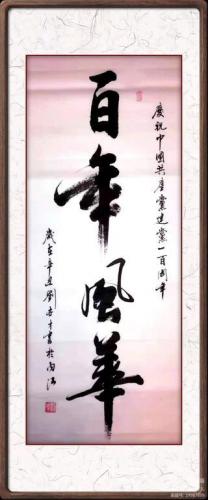 慶祝中國共產黨建黨一百周年
百年風華
歲在辛丑劉書於南江